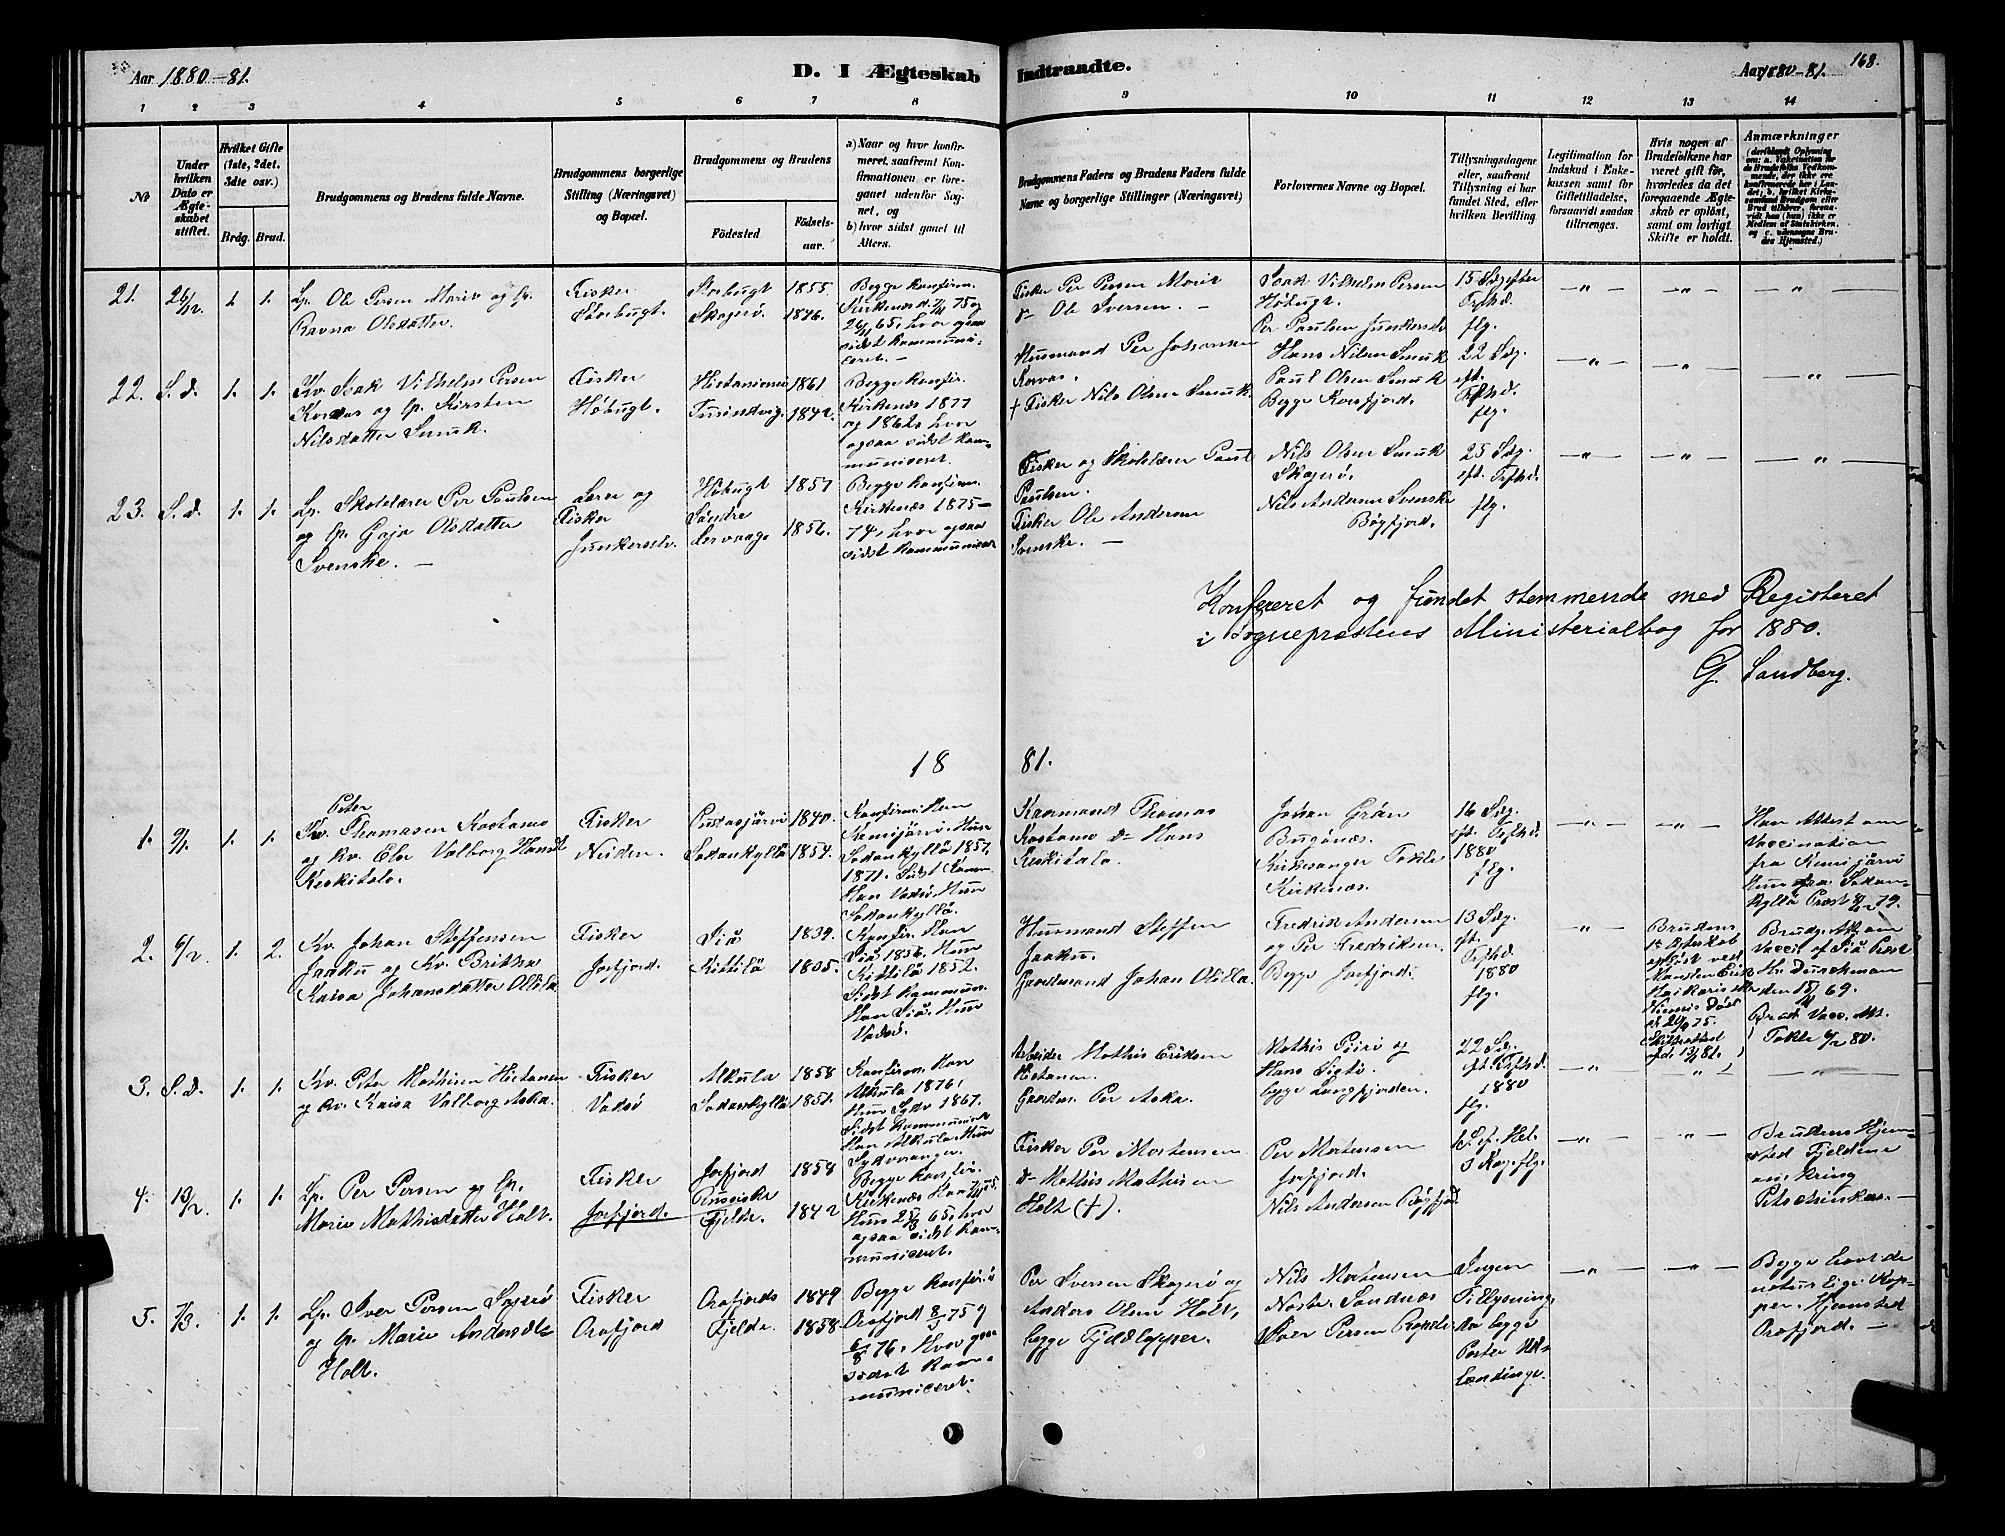 Aar 1880-81.
D. I Ægteskab Indtraadte.
Aar 1880-81.
168.
1 2 3 4 5 6 7 8 9 10 11 12 13 14
№
Under hvilken Dato er Ægteskabet stiftet.
Hvilket Gifte (1ste, 2det, 3die osv.)
Brdg. Brud.
Brudgommens og Brudens fulde Navne.
Brudgommens borgerlige Stilling (Næringsvei) og Bopæl.
Brudgommens og Brudens
Födested
Födselsaar.
a) Naar og hvor konfirmeret, saafremt Konfirmationen er foregaaet udenfor Sognet, og
b) hvor sidst gaaet til Alters.
Brudgommens Faders og Brudens Faders fulde Navne og borgerlige Stillinger (Næringsvei)
Forlovernes Navne og Bopæl.
Tillysningsdagene eller, saafremt Tillysning ei har fundet Sted, efter hvilken Bevilling.
Legitimation for Indskud i Enkekassen samt for Giftetilladelse, forsaavidt saadan tiltrænges.
Hvis nogen af Brudefolkene har været gift för, hvorledes da det foregaaende Ægteskab er oplöst, samt om lovligt Skifte er holdt.
Anmærkninger
21. 26/12. 1. 1.
Lp. Ole Persen Moris og lp.
Ravna Olsdatter.
Fisker
Storbugt.
Storbugt 1855.
Skogerö 1846.
Begge Konfirm.
Kirkenæs d. 7/11 75 og
26/11 65, hvor ogsaa
sidst kommuni-
ceret. —
Fisker Per Persen Moris
do Ole Iversen. —
Isak Vilhelm Persen
Höbugt.
Per Paulsen Junkerselv
15 Sdg. efter
Trfhd.
flg.
—„— —„— —„—
22. S. d. 1. 1.
Kv. Isak Vilhelm Persen
Korvas og lp. Kirsten
Nilsdatter Smuk.
Fisker
Höbugt.
Hietaniemi 1861
Tusindvig. 1842.
Begge konfir.
Kirkenæs 1877
og 1862, hvor
ogsaa sidst kom-
municeret.
Husmand Per Johansen
Korvas.
† Fisker Nils Olsen Smuk.
Hans Nilsen Smuk
Paul Olsen Smuk
Begge Korsfjord.
22 Sdg.
eft.
Trfhd.
flg.
—„— —„— —„—
23. S. d. 1. 1.
Lp. Skolelærer Per Paulsen
og lp. Gaja Olsdatter
Svenske. —
Lærer og
Fisker
Junkerselv.
Höbugt 1857
Söndre
Lervaag. 1856.
Begge konfirm.
Kirkenæs 1875—
74, hvor ogsaa
sidst kommunicer
Fisker og Skolelærer Paul
Paulsen.
Fisker Ole Andersen
Svenske. —
Nils Olsen Smuk
Skogerö.
Nils Andersen Svenske
Bögfjord.
25 Sdg.
eft. Trfhd.
flg.
—„— —„— —„—
Konfereret og fundet stemmende med Registeret
i Sognepræstens Ministerialbog for 1880.
G. Sandberg.
1881.
1. 9/1. 1. 1.
Peter
Kv. Thomasen Kostamo
og kv. Elsa Valborg Hansdt
Keskitalo.
Fisker
Neiden.
Pudasjärvi 1840.
Sodankylä 1854.
Konfirm. Han
Kemijärvi. Hun
Sodankylä 1857,
1871. Sidst Komm.
Han Vadsö. Hun
Sodankylä.
Gaardmand Thomas
Kostamo do Hans
Keskitalo.
Johan Grön
Bugönæs.
Kirkesanger Tokle
Kirkenæs.
16 Sdg.
eft. Trfhd.
1880
flg.
—„— —„—
Han Attest om
Vaccination
fra Kemijärvi
Hun fra Sodan-
kylä
2. 6/2. 1. 2.
Kv. Johan Steffensen
Jaaku og Kv. Britha
Kaisa Johansdatter Ollila
Fisker
Jarfjord.
Siö 1839.
Kittilä 1835.
Konfir. Han
Siö 1856. Hun
Kittilä 1852.
Sidst kommun.
Han Siö. Hun
Vadsö.
Husmand Steffen
Jaaku.
Gaardmand Johan Ollila.
Fredrik Andersen
og Per Fredriksen.
Begge Jarfjord.
13 Sdg.
eft.
Trfhd.
1880
flg.
—„—
Brudens
1e Ægteskab
oplöst ved
Manden
Niemis Död
Brudg. Att. om
Vacc. af
den 15/11 69.
Brud. Vacc. Att.
Tokle 6/2 80.
3. S. d. 1. 1.
Kv. Peter Mathisen Hietanen
og kv. Kaisa Valborg Aska.
Fisker
Vadsö
Alkula 1858
Sodankylä 1851.
Konfirm. Han
Alkula 1876,
Hun Sydv 1867.
Sidst kommunic
Han Alkula. Hun
Sydvaranger.
Arbeider Mathis Eriksen
Hietanen.
Gaardm. Per Aska.
Mathis Piiri og
Hans
begge Langfjorden.
22 S.
eft. Trfhd.
1880
flg.
„ „
4. 13/2. 1. 1.
Lp. Per Persen og lp.
Marie Mathisdatter Holt.
Fisker
Jarfjord.
Jarfjord 1858
Russiske
Fjelde. 1842
Begge konfir.
Kirkenæs Han
Hun 65, hvor
ogsaa sidst kom-
municeret.
Fisker Per Mortensen
do Mathis Mathisen
Holt (†).
Per Mortensen
Jarfjord.
Nils Andersen Bögfjord
1 S. f. Hel.
3 Kog. flg.
—„— —„—
Brudens Hjem-
sted Fjeldene
omkring
Petschinka. —
5. 7/3. 1. 1.
Lp. Iver Persen
og lp. Marie Andersdt
Holt.
Fisker
Orefjord
Orefjord 1849
Fjelde. 1858
Begge konfir. i
Orefjord 8/3 75 og
6/8 76. Hvor og saa
sidst kom-
municeret.
Per Iversen Skogerö og
Anders Olsen Holt,
begge Fjeldlapper.
Nils Mortensen
Nostr. Sandnæs
Iver Persen
Ingen
Tillysning,
da begge
Parter
—„— —„—
Begge havt de
naturlige Kop-
per. Hjemsted
Orefjord. —